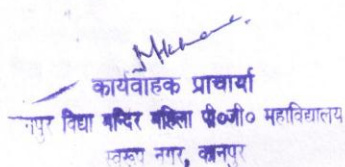 कार्यवाहक प्राचार्या
विद्या मन्दिर महिला पी०जी० महाविद्यालय
स्वरूप नगर, कानपुर